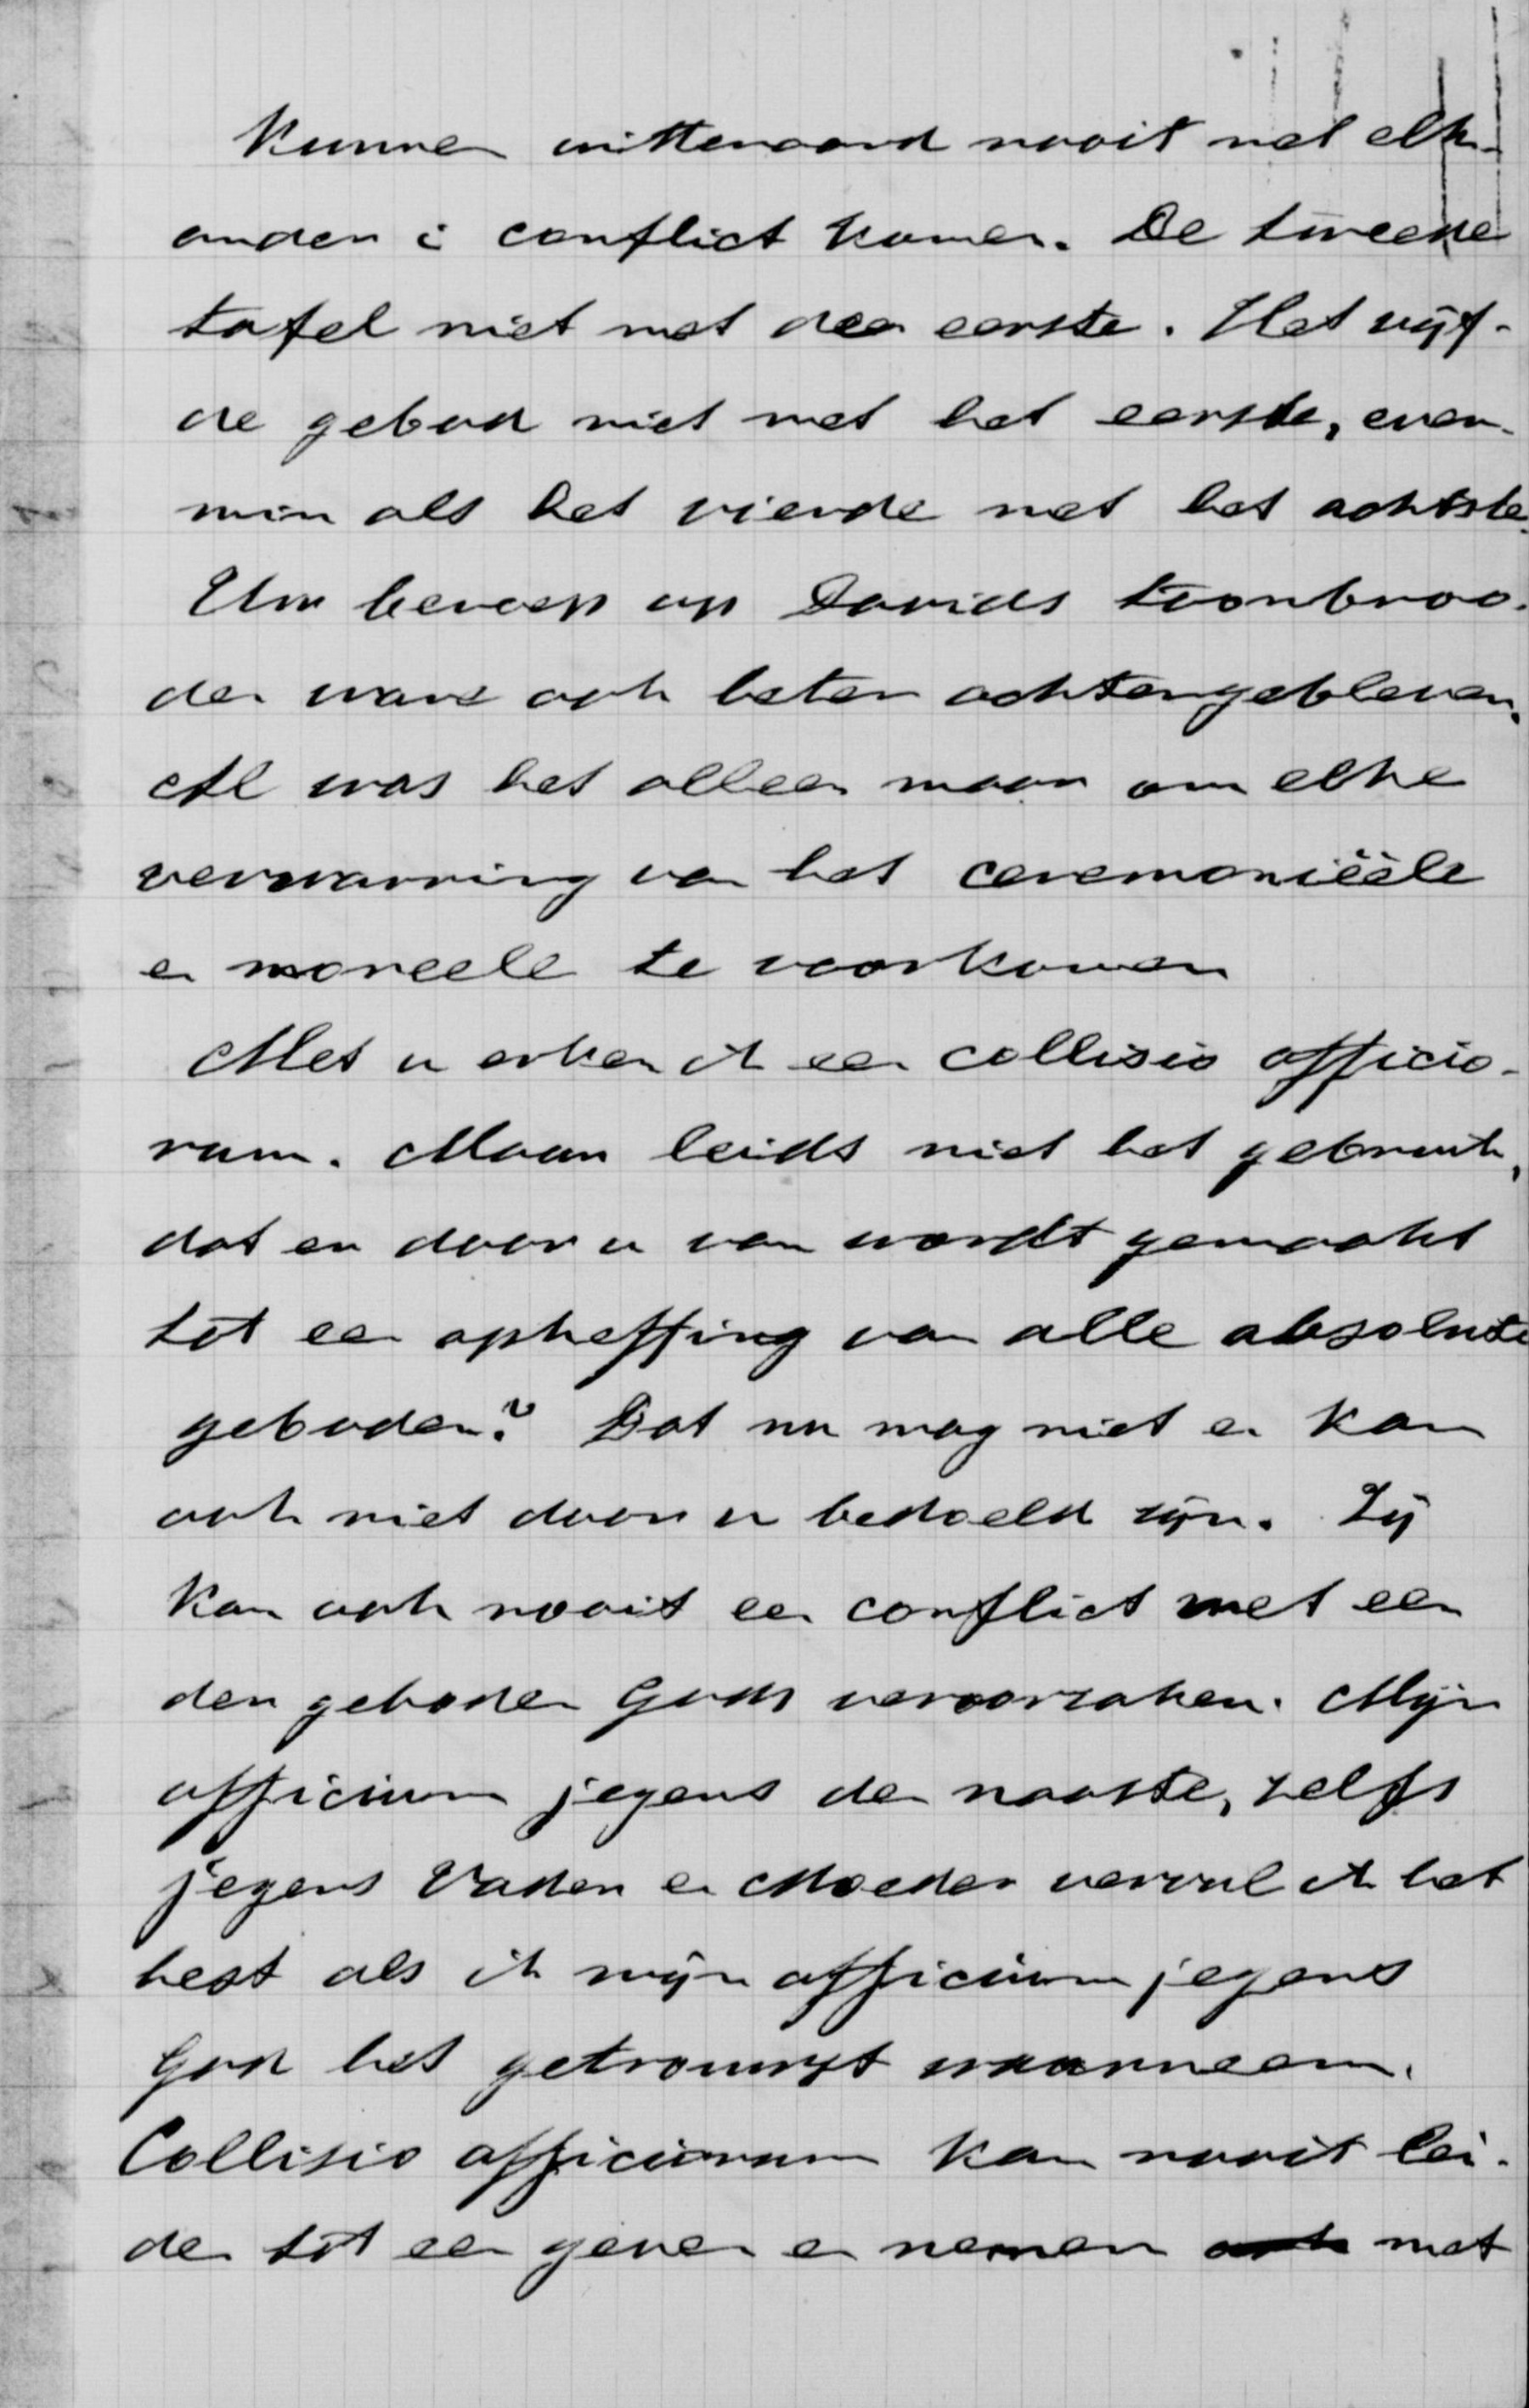 Kunnen uitteraard nooit met elk-
ander in conflict komen. De tweede
tafel niet met den eerste. Het vijf-
de gebod niet met het eerste, even-
min als het vierde met het achtste.
Uw beroep op Davids toonbroo-
den ware ook beter achtergebleven.
Al was het alleen maar om elke
verwarring van het ceremoniëele
en moreele te voorkomen
Met u erken ik een collisio officio-
rum. Maar leidt niet het gebruik,
dat er door u van wordt gemaakt
tot een opheffing van alle absolute
geboden? Dat nu mag niet en kan
ook niet door u bedoeld zijn. Zij
kan ook nooit een conflict met een
der geboden Gods veroorzaken. Mijn
officium jegens den naaste, zelfs
jegens Vader en Moeder vervul ik het
best als ik mijn officium jegens
God het getrouwst waarneem.
Collisio officiorum kan nooit lei-
den tot een geven en nemen met